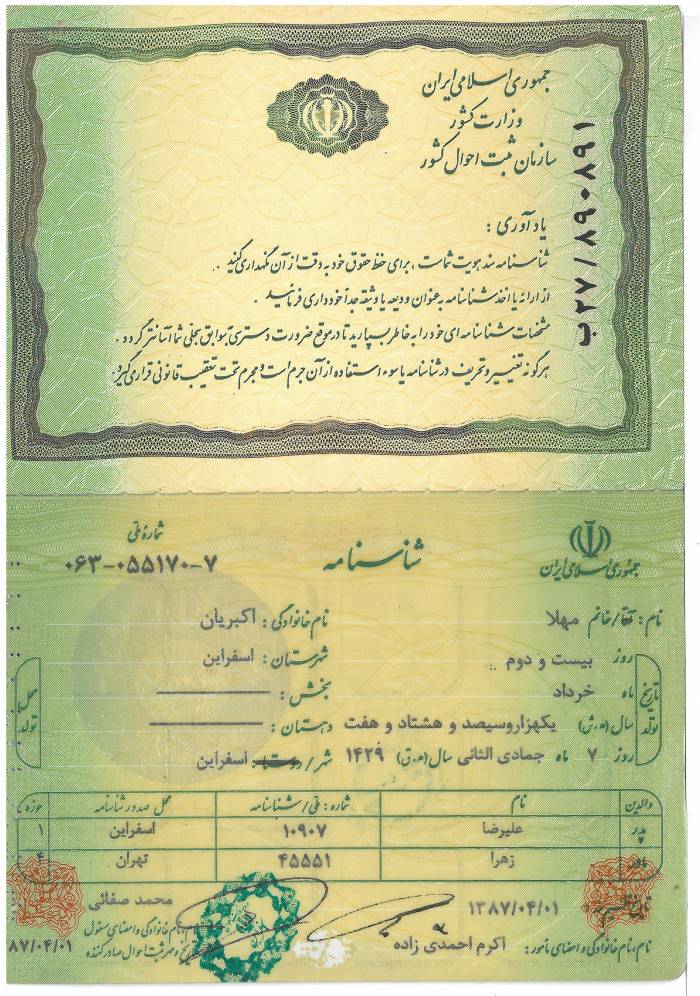 جمهوری اسلامی ایران
وزارت کشور
سازمان ثبت احوال کشور
ب۲۷/۸۹۰۸۹۱
یادآوری :
شناسنامه سند هویت شماست ، برای حفظ حقوق خود به دقت از آن نگهداری کنید .
از ارائه یا اخذ شناسنامه به عنوان ودیعه یا وثیقه جداً خودداری فرمائید .
مشخصات شناسنامه ای خود را به خاطر بسپارید تا در موقع ضرورت دسترسی به سوابق سجلی شما آسانتر گردد .
هرگونه تغییر و تحریف در شناسنامه یا سوء استفاده از آن جرم است و مجرم تحت تعقیب قانونی قرار می گیرد.
جمهوری اسلامی ایران
شناسنامه
شماره ملی
۰۶۳-۰۵۵۱۷۰-۷
نام : آقا/خانم مهلا نام خانوادگی : اکبریان
تاریخ تولد
روز بیست و دوم شهرستان : اسفراین
ماه خرداد بخش :
سال (ه.ش) یکهزاروسیصد و هشتاد و هفت دهستان :
روز ۷ ماه جمادی الثانی سال (ه.ق) ۱۴۲۹ شهر/روستا : اسفراین
محل تولد
والدین نام شماره : ملی/شناسنامه محل صدور شناسنامه حوزه
پدر علیرضا ۱۰۹۰۷ اسفراین ۱
مادر زهرا ۴۵۵۵۱ تهران ۴
تاریخ تنظیم ۱۳۸۷/۰۴/۰۱ محمد صفائی
نام،نام خانوادگی و امضای مأمور : اکرم احمدی زاده
نام،نام خانوادگی و امضای مسئول
و مهر ثبت احوال صادرکننده
۸۷/۰۴/۰۱